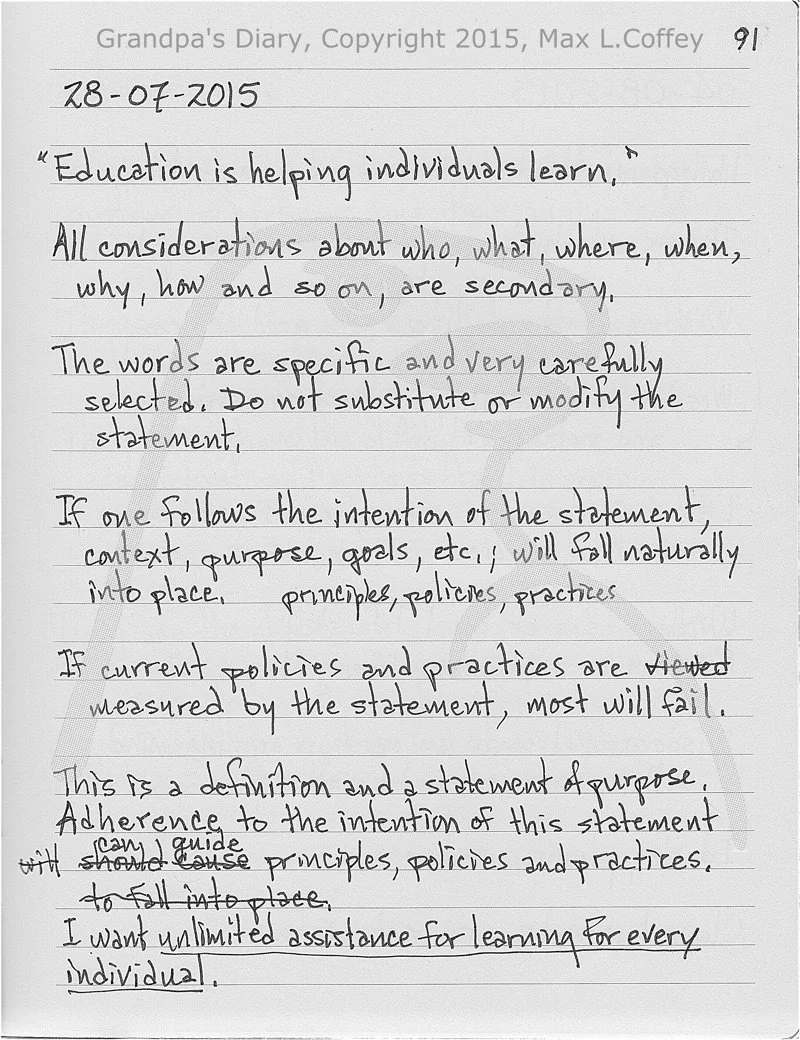 Grandpa's Diary, Copyright 2015, Max L.Coffey 91
28-07-2015
"Education is helping individuals learn."
All considerations about who, what, where, when,
why, how and so on, are secondary.
The words are specific and very carefully
selected. Do not substitute or modify the
statement.
If one follows the intention of the statement,
context, purpose, goals, etc.; will fall naturally
into place. principles, policies, practices
If current policies and practices are viewed
measured by the statement, most will fail.
This is a definition and a statement of purpose.
Adherence to the intention of this statement
can guide
will should cause principles, policies and practices.
to fall into place.
I want unlimited assistance for learning for every
individual.